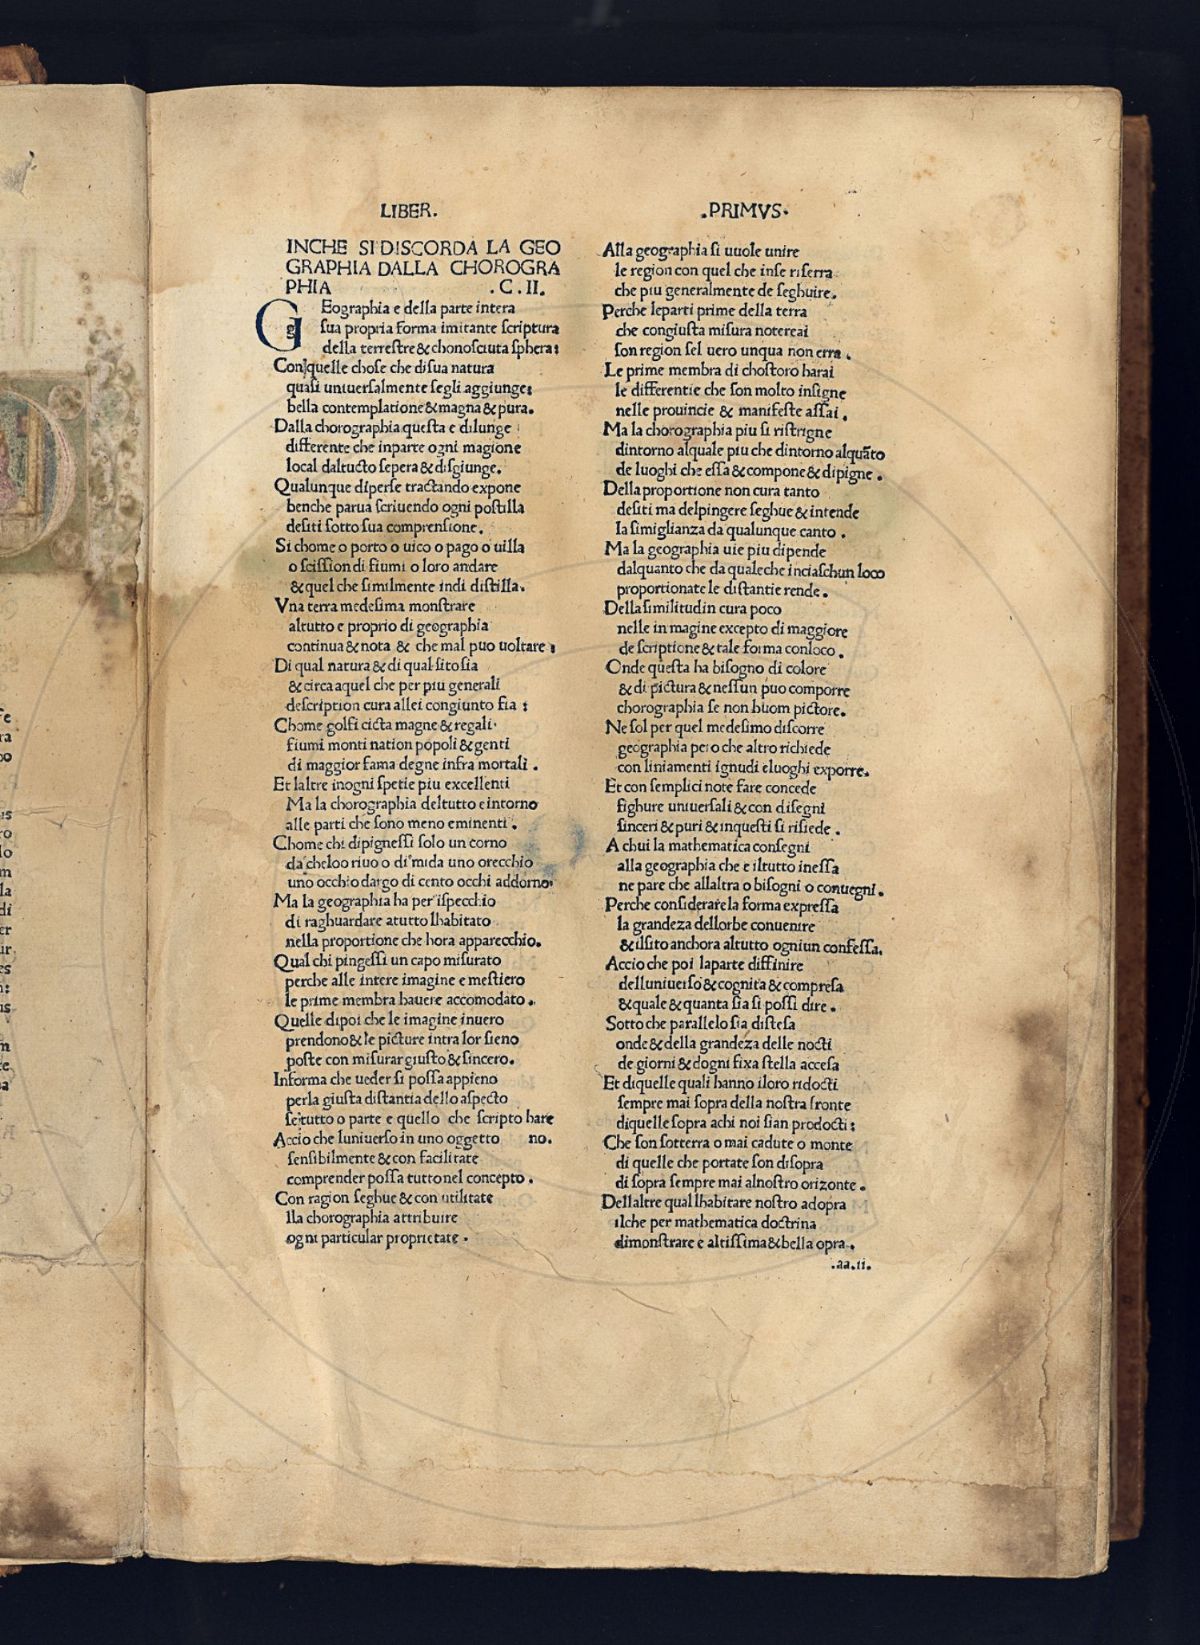 LIBER.
.PRIMVS.
INCHE SI DISCORDA LA GEO
GRAPHIA DALLA CHOROGRA
PHIA .C.II.
G
g
Eographia e della parte intera
sua propria forma imitante scriptura
della terrestre & chonosciuta sphera:
Con quelle chose che disua natura
quasi uniuersalmente segli aggiunge:
bella contemplatione & magna & pura.
Dalla chorographia questa e dilunge
differente che inparte ogni magione
local daltucto sepera & disgiunge.
Qualunque diperse tractando expone
benche parua scriuendo ogni postilla
desiti sotto sua comprensione.
Si chome o porto o uico o pago o uilla
o scission di fiumi o loro andare
& quel che similmente indi distilla.
Vna terra medesima monstrare
altutto e proprio di geographia
continua & nota & che mal puo uoltare:
Di qual natura & di qual sito sia
& circa aquel che per piu generali
description cura allei congiunto fia:
Chome golfi cicta magne & regali
fiumi monti nation popoli & genti
di maggior fama degne infra mortali.
Et laltre inogni spetie piu excellenti
Ma la chorographia deltutto e intorno
alle parti che sono meno eminenti.
Chome chi dipignessi solo un corno
da cheloo riuo o di mida uno orecchio
uno occhio dargo di cento occhi addorno.
Ma la geographia ha per ispecchio
di raghuardare atutto lhabitato
nella proportione che hora apparecchio.
Qual chi pingessi un capo misurato
perche alle intere imagine e mestiero
le prime membra hauere accomodato.
Quelle dipoi che le imagine inuero
prendono & le picture intra lor sieno
poste con misurar giusto & sincero.
Informa che ueder si possa appieno
perla giusta distantia dello aspecto
se tutto o parte e quello che scripto hare
Accio che luniuerso in uno oggetto no.
sensibilmente & con facilitate
comprender possa tutto nel concepto.
Con ragion seghue & con utilitate
lla chorographia attribuire
ogni particular proprietate.
Alla geographia si uuole unire
le region con quel che inse riserra
che piu generalmente de seghuire.
Perche leparti prime della terra
che congiusta misura notereai
son region sel uero unqua non erra.
Le prime membra di chostoro harai
le differentie che son molto insigne
nelle prouincie & manifeste assai.
Ma la chorographia piu si ristrigne
dintorno alquale piu che dintorno alquāto
de luoghi che essa & compone & dipigne.
Della proportione non cura tanto
desiti ma delpingere seghue & intende
la simiglianza da qualunque canto.
Ma la geographia uie piu dipende
dalquanto che da quale che inciaschun loco
proportionate le distantie rende.
Della similitudin cura poco
nelle in magine excepto di maggiore
descriptione & tale forma conloco.
Onde questa ha bisogno di colore
& di pictura & nessun puo comporre
chorographia se non huom pictore.
Ne sol per quel medesimo discorre
geographia pero che altro richiede
con liniamenti ignudi eluoghi exporre.
Et con semplici note fare concede
fighure uniuersali & con disegni
sinceri & puri & inquesti si risiede.
A chui la mathematica consegni
alla geographia che e iltutto inessa
ne pare che allaltra o bisogni o conuegni.
Perche considerare la forma expressa
la grandeza dellorbe conuenire
& ilsito anchora altutto ogniun confessa.
Accio che poi laparte diffinire
delluniuerso & cognita & compresa
& quale & quanta sia si possi dire.
Sotto che parallelo sia distesa
onde & della grandeza delle nocti
de giorni & dogni fixa stella accesa
Et diquelle quali hanno iloro ridocti
sempre mai sopra della nostra fronte
diquelle sopra achi noi sian prodocti:
Che son sotterra o mai cadute o monte
di quelle che portate son disopra
di sopra sempre mai alnostro orizonte.
Dellaltre qual lhabitare nostro adopra
ilche per mathematica doctrina
dimonstrare e altissima & bella opra.
.aa.ii.